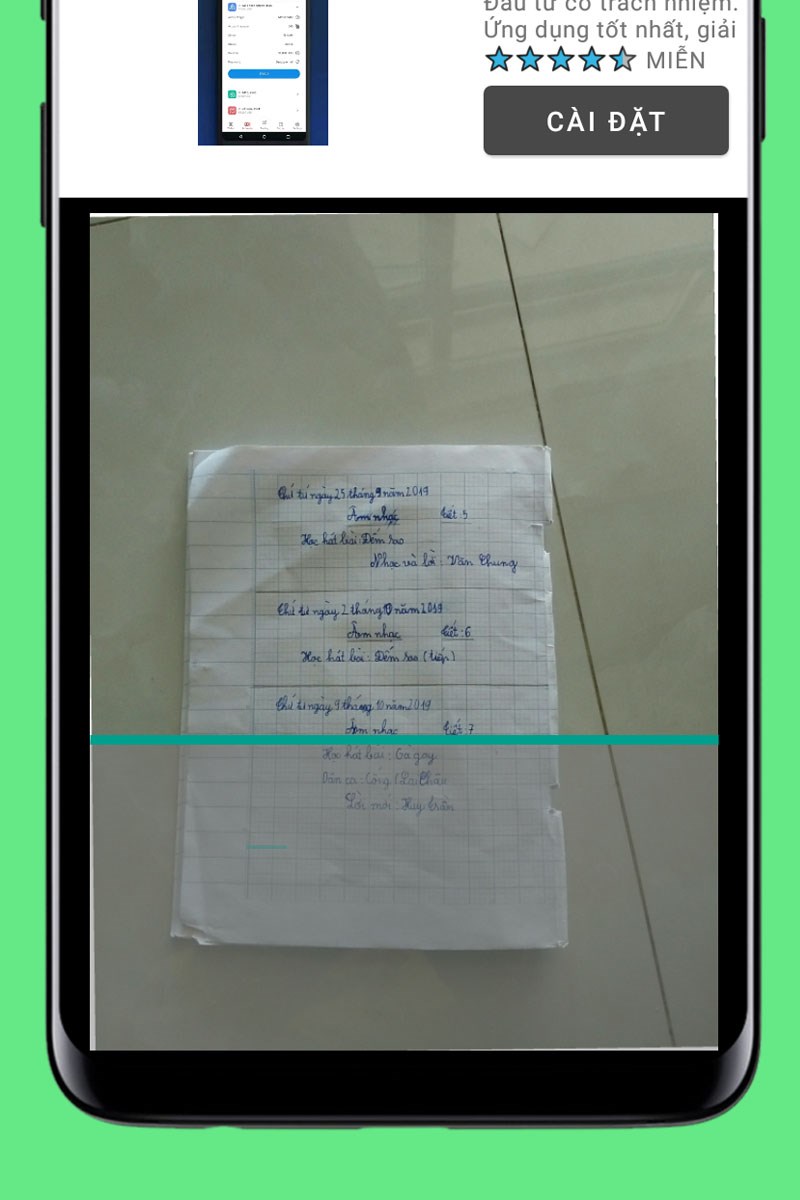 Đầu tư có trách nhiệm.
Ứng dụng tốt nhất, giải
MIỄN
CÀI ĐẶT
Thứ tư ngày 25 tháng 9 năm 2019
Âm nhạc Tiết: 5
Học hát bài: Đếm sao
Nhạc và lời: Văn Chung
Thứ tư ngày 2 tháng 10 năm 2019
Âm nhạc Tiết: 6
Học hát bài: Đếm sao (tiếp)
Thứ tư ngày 9 tháng 10 năm 2019
Âm nhạc Tiết: 7
Học hát bài: Gà gáy
Dân ca: Cống (Lai Châu
Lời mới: Huy Trân